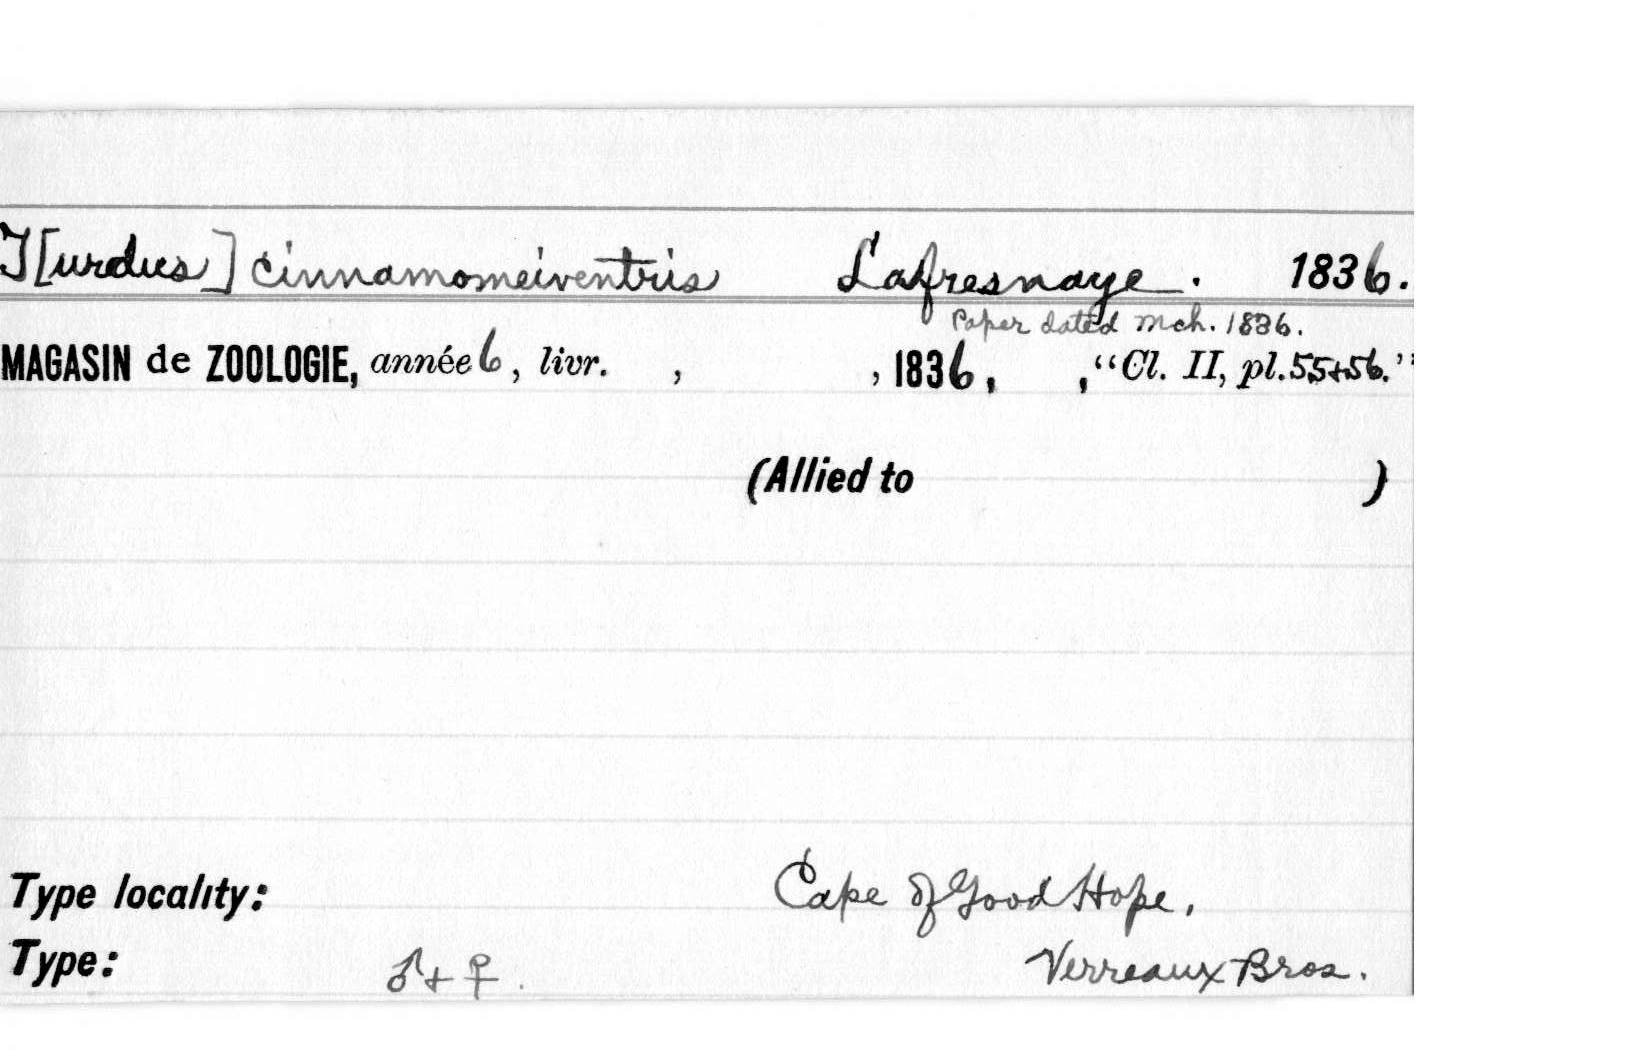 T[urdus] cinnamomeiventris Lafresnaye. 1836.
Paper dated Mch. 1836.
MAGASIN de ZOOLOGIE, année 6, livr. , , 1836, , "Cl. II, pl. 55+56."
(Allied to )
Type locality: Cape of Good Hope,
Type: ♂+♀. Verreaux Bros.